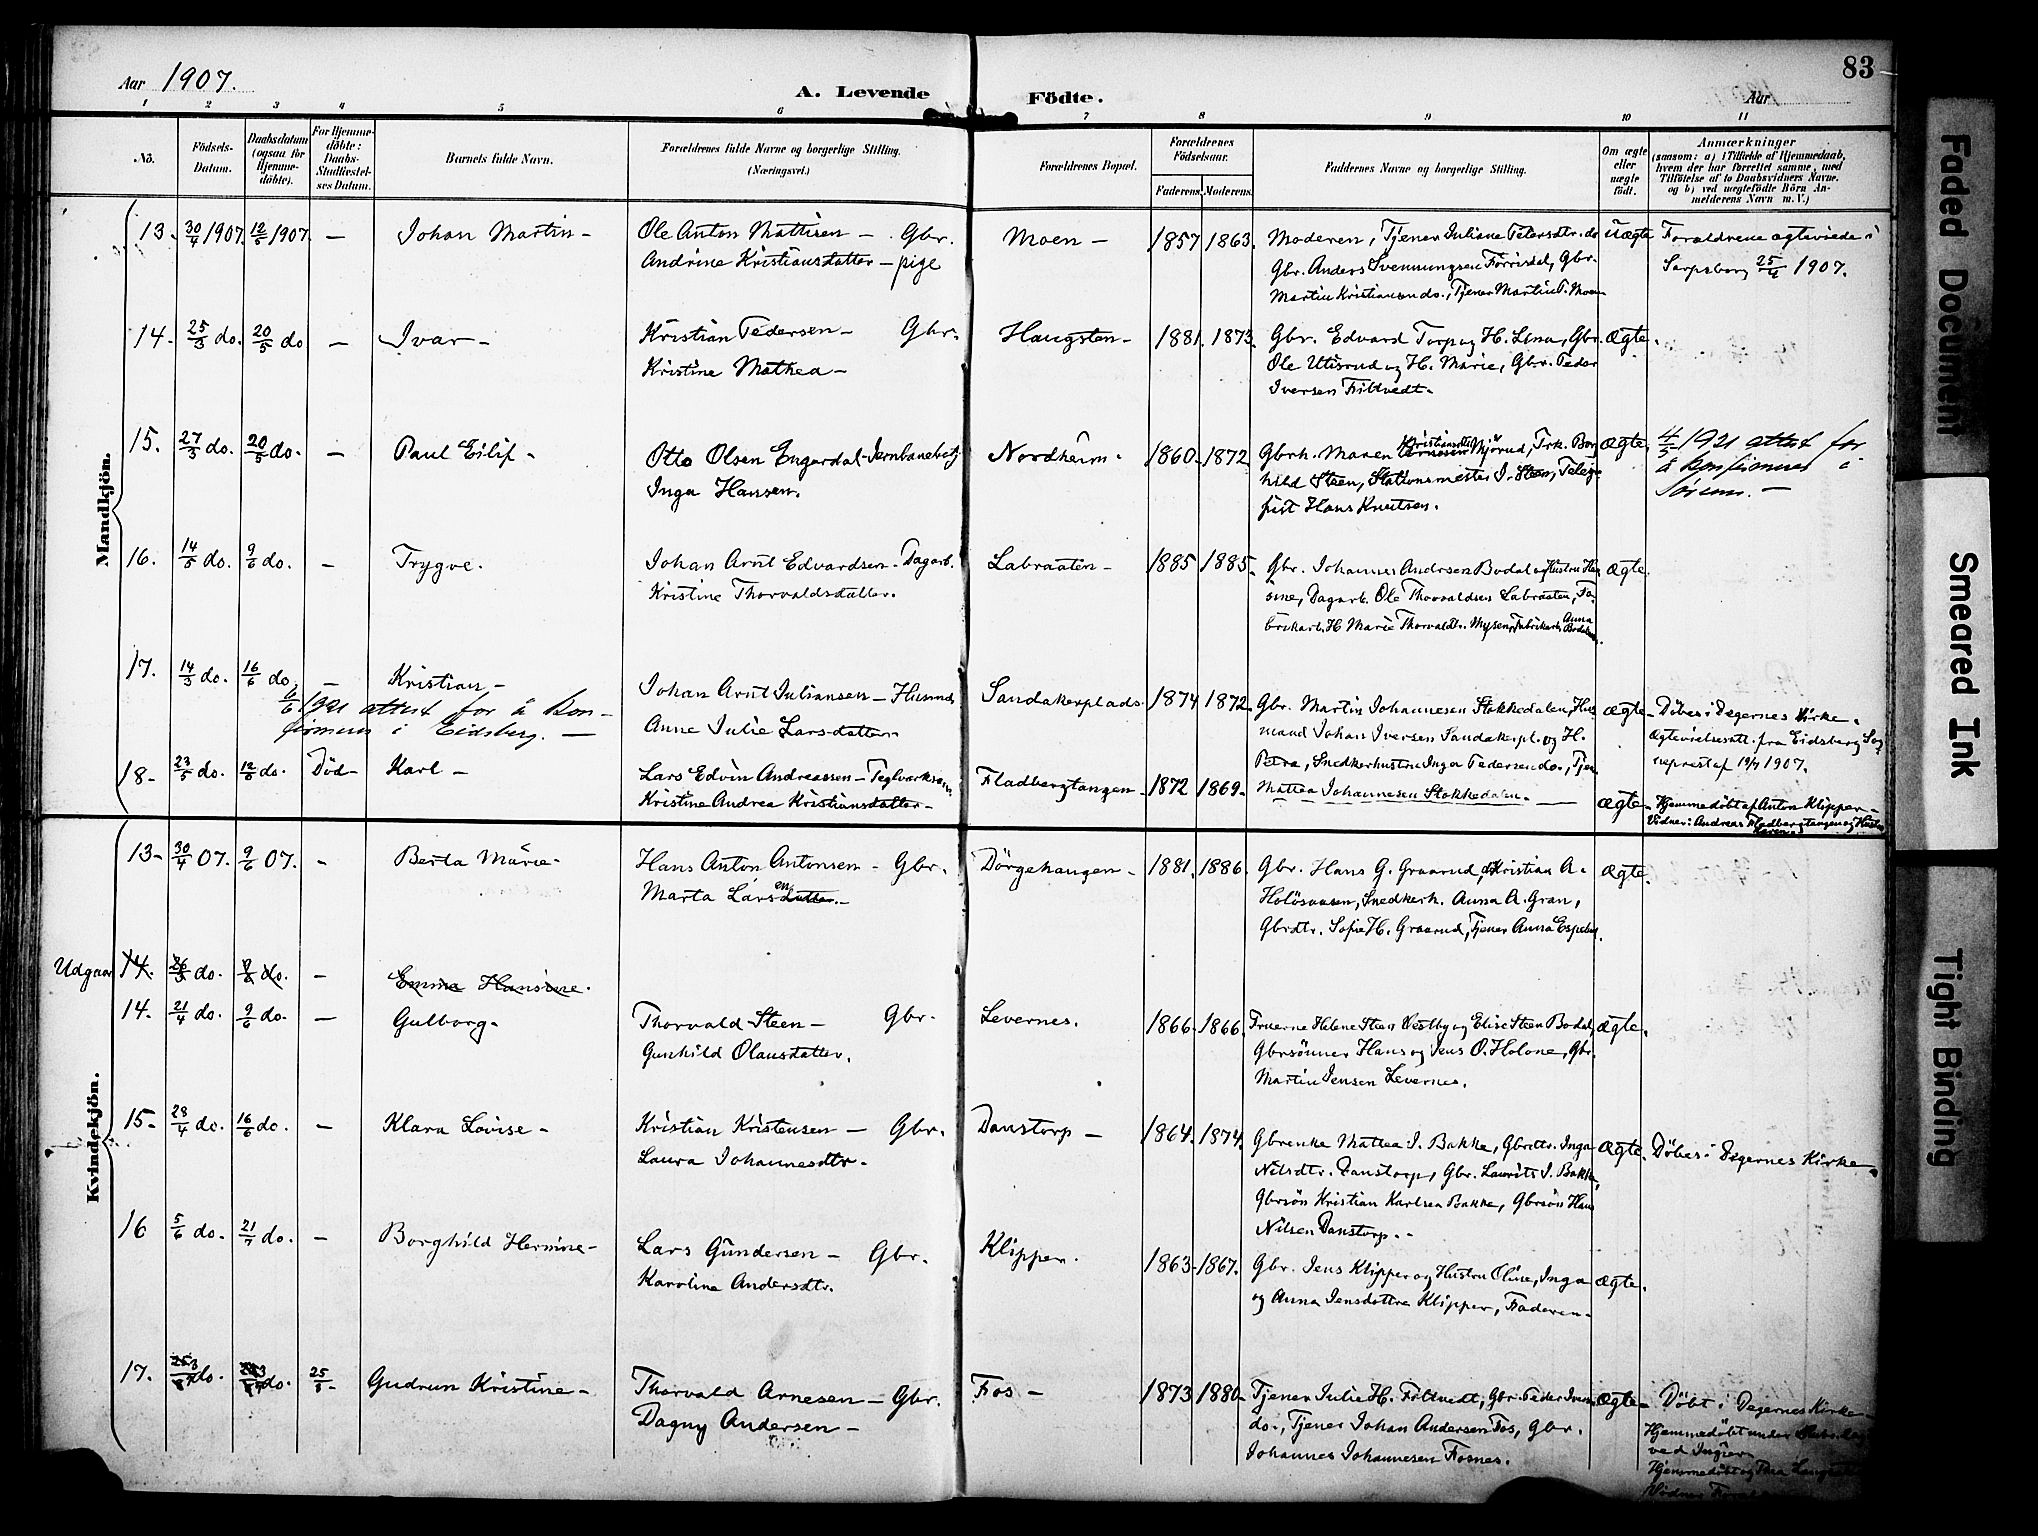 Aar 1907.
A. Levende Födte.
Aar
83
1 2 3 4 5 6 7 8 9 10 11
No.
Födsels-Datum.
Daabsdatum (ogsaa for Hjemme-döbte).
For Hjemme-döbte: Daabs-Stadfæstel-ses Datum.
Barnets fulde Navn.
Forældrenes fulde Navne og borgerlige Stilling. (Næringsvei.)
Forældrenes Bopæl.
Forældrenes Födselsaar.
Faderens. Moderens.
Faddernes Navne og borgerlige Stilling.
Om ægte eller uægte födt.
Anmærkninger
(saasom: a) i Tilfælde af Hjemmedaab,
hvem der har forrettet samme, med
Tilföielse af to Daabsvidners Navne.
og b) ved uægtefödte Börn An-
melderens Navn m. V.)
Mandkjön.
13. 30/4 1907. 12/5 1907. — Johan Martin — Ole Anton Mattisen — Gbr. Moen — 1857 1863. Moderen, Tjener Juliane Petersdtr. do Uægte Forældrene ægteviede i
Andrine Kristiansdatter — pige Gbr. Anders Svenningsen Förrisdal, Gbr. Sarpsborg 25/4 1907.
Martin Kristiansen do., Tjener Martin T. Moen
14. 25/3 do. 20/5 do — Ivar — Kristian Pedersen — Gbr. Haugsten — 1881. 1873. Gbr. Edvard Torp og H. Lina, Gbr. Ægte.
Kristine Mathea — Ole Utisrud og H. Marie, Gbr. Peder
Iversen Filtvedt.
15. 27/3 do. 20/5 do. — Paul Eilif — Otto Olsen Engerdal — Jernbanebetj. Nordheim — 1860. 1872 Gbrh. Maren Kristiansdtr. Mjörud, Frk. Borg Ægte. 4/5 1921 attest for
Inga Hansen. hild Steen, Stationsmester J. Steen, Telegr å konfirmeres i
fist Hans Knutsen. Sörum. —
16. 14/5 do. 9/6 do. — Trygve. Johan Arnt Edvardsen — Dagarb. Labraaten — 1885 1885. Gbr. Johannes Andersen Bodal og Hustru Han Ægte.
Kristine Thorvaldsdatter. sine, Dagarb. Ole Thorvaldsen Labraaten, Fa-
brikarb. H. Marie Thorvaldtr. Mysen, Fabrikarb. Anna Bodal
17. 14/3 do. 16/6 do. — Kristian — Johan Arnt Juliansen — Husmd Sandakerplads 1874 1872. Gbr. Martin Johannesen Stokkedalen, Hus Ægte — Döbt i Degernes Kirke.
6/6 1921 attest for å kon-
firmeres i Eidsberg. —
Anne Julie Larsdatter mand Johan Iversen Sandakerpl. og H. Ægtevielsesatt. fra Eidsberg Sog
Petra, Snedkerhustru Inga Pedersen do., Tjen. neprest af 19/7 1907.
Mattea Johannesen Stokkedalen. —
18. 23/5 do. 12/6 do. Död — Karl — Lars Edvin Andreassen — Teglverksarb. Fladbergtangen — 1872 1869. Ægte — Hjemmedöbt af Anton Klipper —
Kristine Andrea Kristiansdatter — Vidner: Andreas Fladbergtangen og Hustru Karen.
Kvindekjön.
13 — 30/4 07. 9/6 07. — Berta Marie — Hans Anton Antonsen — Gbr. Dörgehaugen — 1881. 1886. Gbr. Hans G. Graarud, Kristian A. Ægte.
Marta Larsen datter. — Holösaasen, Snedkerh. Anna A. Gran,
Gbrdtr. Sofie H. Graarud, Tjener Anna Espelu
Udgaar 14. 26/3 do. 9/6 do. — Emma Hansine.
14. 21/4 do. 9/6 do. — Gulborg — Thorvald Steen — Gbr. Levernes. 1866. 1866. Fruerne Helene Steen Vestby og Elise Steen Bodal, Ægte.
Gunhild Olausdatter. Gbrsönner Hans og Jens O. Holone, Gbr.
Martin Jensen Levernes.
15 — 28/4 do. 16/6 do. — Klara Lovise — Kristian Kristensen — Gbr. Danstorp — 1864. 1874. Gbrenke Mattea J. Bakke, Gbrdtr. Inga Ægte. Döbt i Degernes Kirke.
Laura Johannesdtr. Nilsdtr. Danstorp, Gbr. Laurits J. Bakke,
Gbrsön Kristian Karlsen Bakke, Gbrsön Hans
Nilsen Danstorp. —
16 5/6 do. 21/7 do. — Borghild Hermine — Lars Gundersen — Gbr. Klipper. 1863 1867. Gbr. Jens Klipper og Hustru Oline, Inga Ægte.
Karoline Andersdtr. og Anna Jensdöttre Klipper, Faderen —
17. do. do. 25/8 — Gudrun Kristine — Thorvald Arnesen — Gbr. Fos — 1873 1880 — Tjener Julie H. Filtvedt, Gbr. Peder Iversen Ægte — Döbt i Degernes Kirke —
Dagny Andersen — do., Tjener Johan Andersen Fos, Gbr. Hjemmedöbt under
Johannes Johannesen Fosnes. ved Ingier
Hjemmedöbt og Thea
Vidner
Faded Document
Smeared Ink
Tight Binding